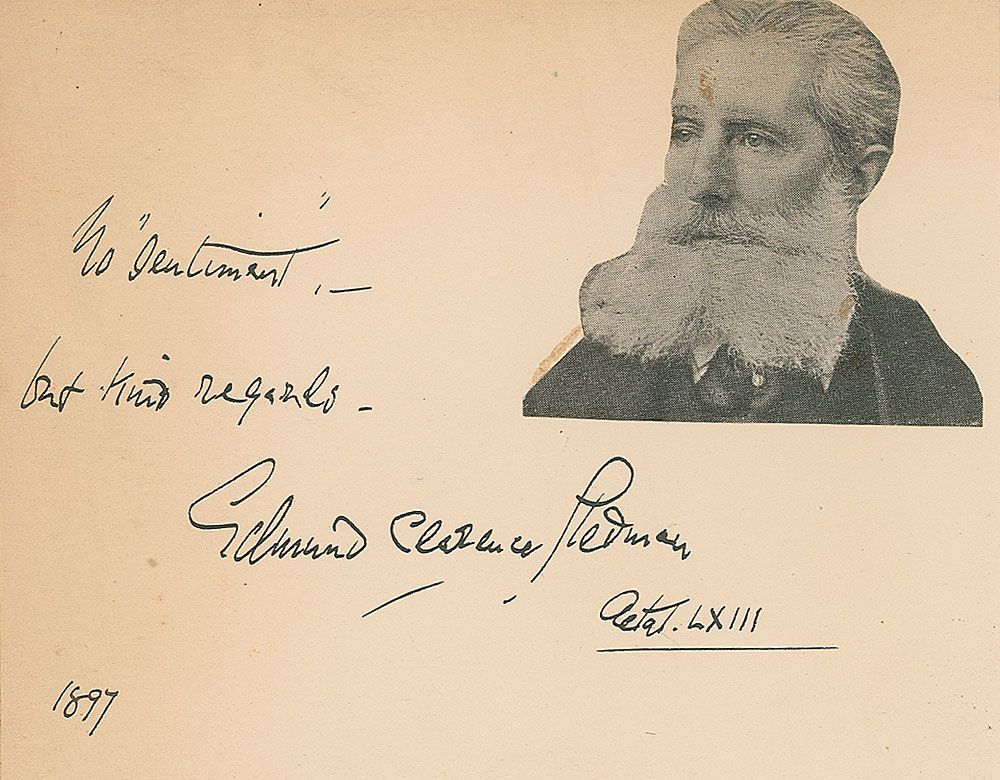 No "Sentiment", —
but kind regards —
Edmund Clarence Stedman
Aetat. LXIII
1897